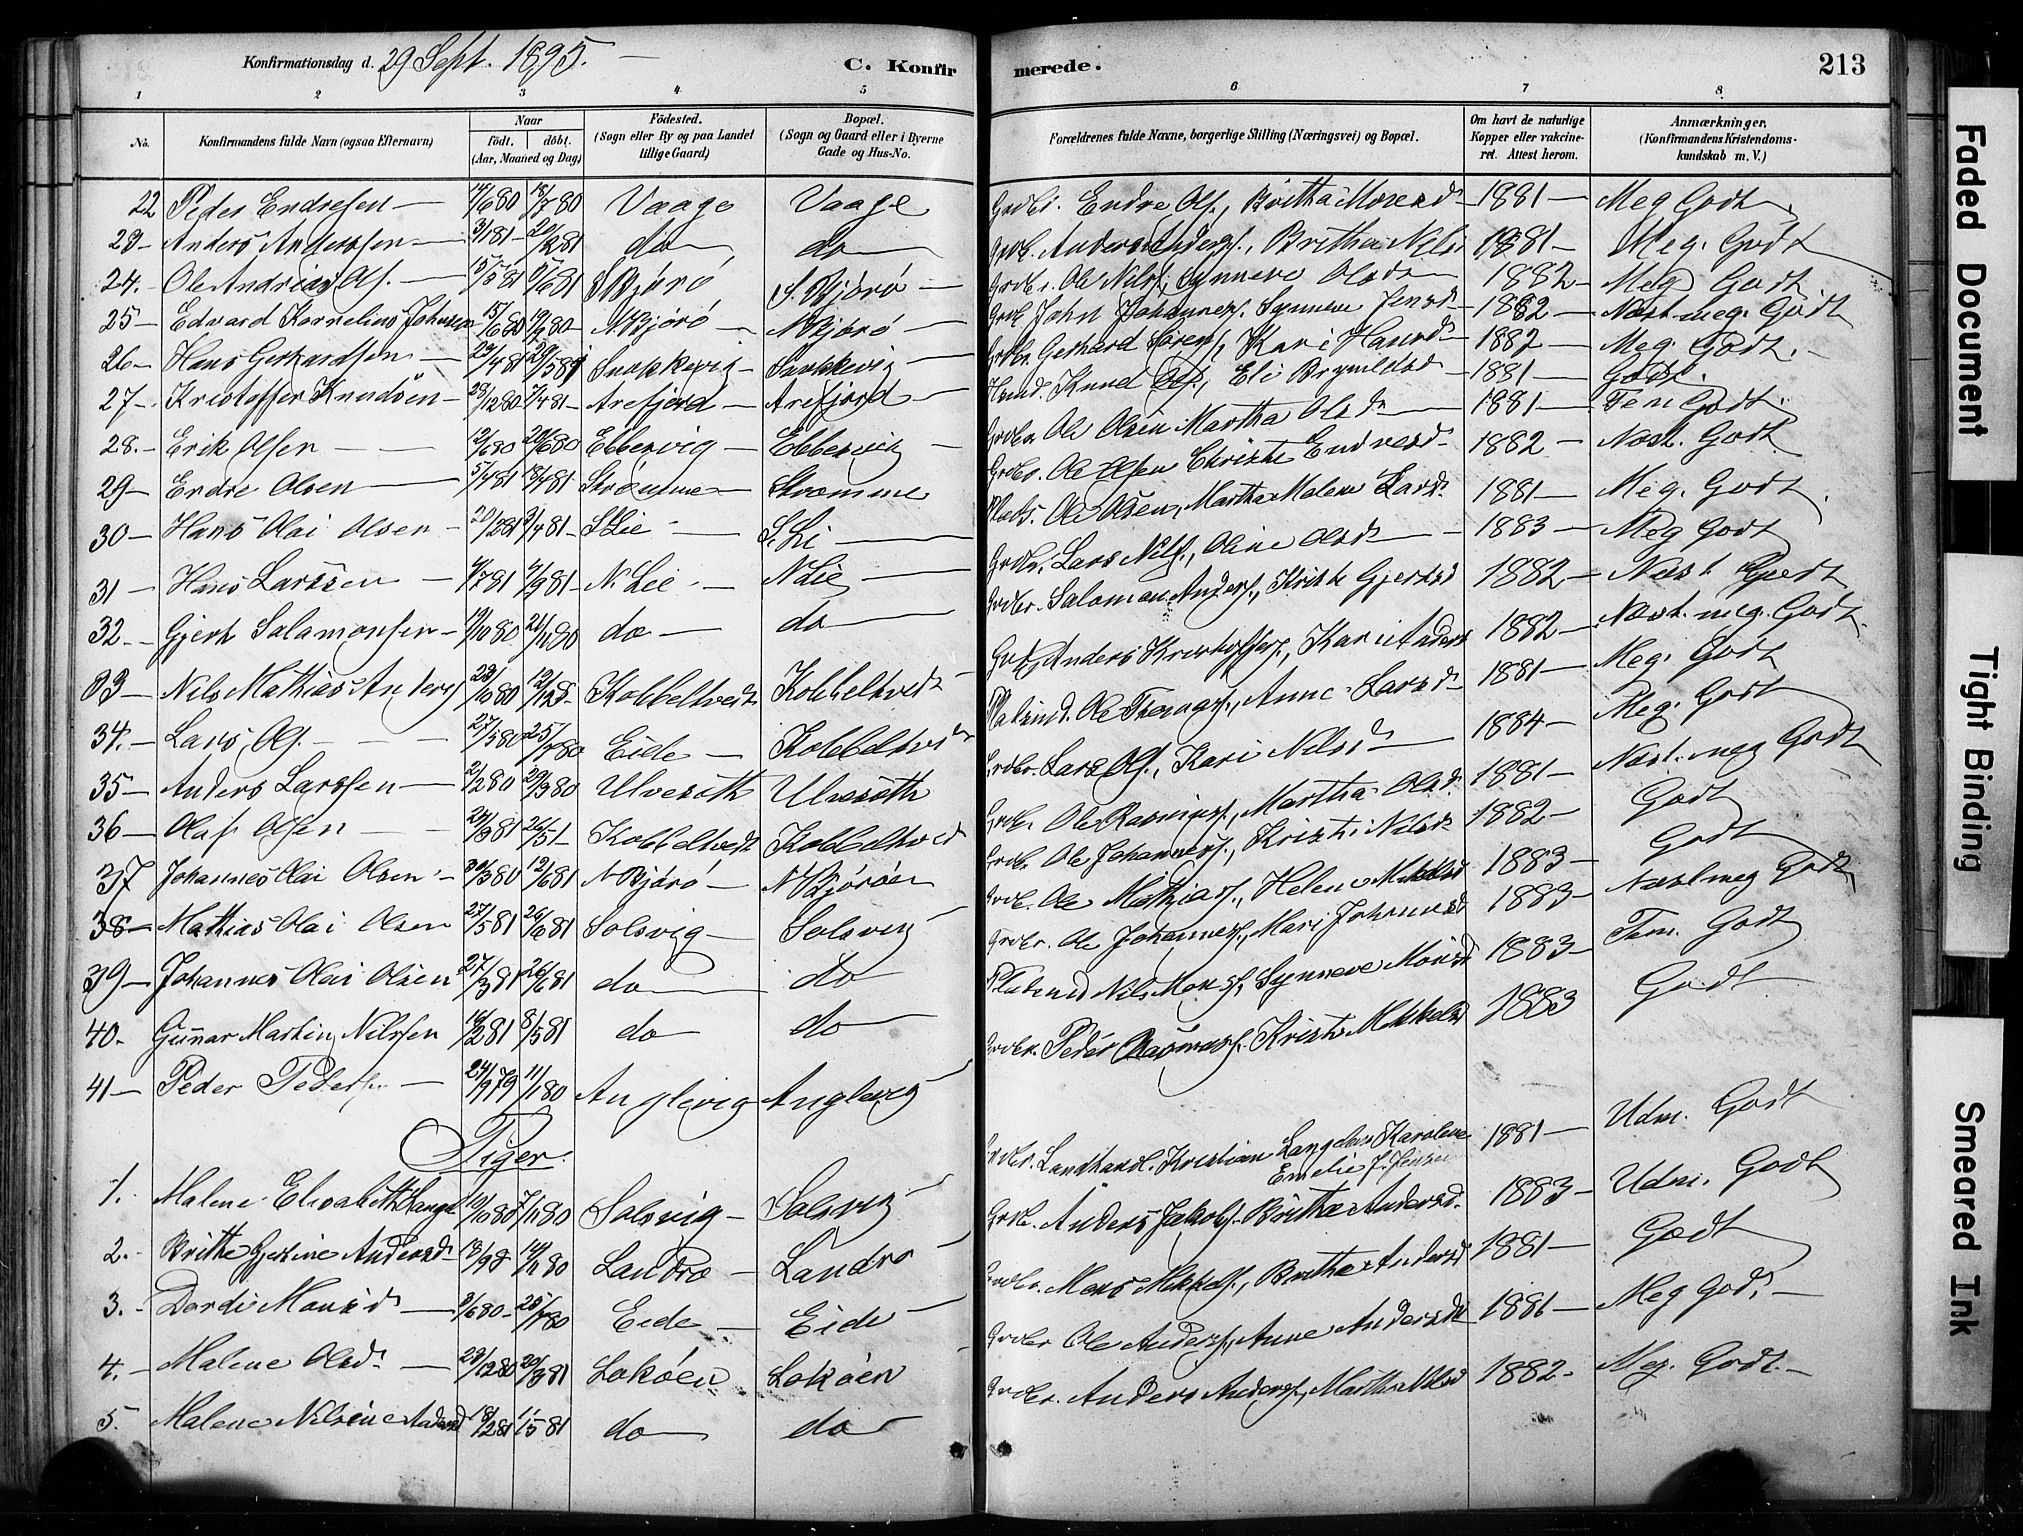 Konfirmationsdag d. 29 Sept. 1895. —
C. Konfir
merede.
213
1 2 3 4 5 6 7 8
No. Konfirmandens fulde Navn (ogsaa Efternavn) Naar født. døbt. (Aar, Maaned og Dag) Fødested. (Sogn eller By og paa Landet tillige Gaard) Bopæl. (Sogn og Gaard eller i Byerne Gade og Hus-No.) Forældrenes fulde Navne, borgerlige Stilling (Næringsvei) og Bopæl. Om havt de naturlige Kopper eller vakcineret. Attest herom. Anmærkninger. (Konfirmandens Kristendomskundskab m. V.)
22 Peder Endresen — Vaage Vaage Grdbr. Endre Ols., Britha Monsd. 1881 — Meg Godt
23 — Anders Anderssen — do do Grdbr. Anders Anders., Britha Nilsd 1881 — Meg. Godt
24. Ole Andreas Ols. — 15/5 81 S Bjørø S. Bjørø — Grdbr. Ole Nils., Synneve Olsd 1882 — Meg Godt
25 — Edvard Kornelius Johnsen 15/6 80 N. Bjørø — N Bjørø — Grdbr John Johannes. Synneve Jensd 1882 — Næst meg. Godt
26 — Hans Gerhardsen — 23/4 81 29/5 81 Snekkevig — Snekkevig — Grdbr. Gerhard Sørens., Kari Hansd 1882 — Meg. Godt. —
27 — Kristoffer Knudsen — 28/12 80 Arefjord — Arefjord — Knud Ols., Eli Brynildsd — 1881 — Godt.
28. — Erik Olsen — Ebbesvig — Ebbesvig — Grdbr. Ole Olsen Martha Olsd 1881 — Tem Godt.
29 — Endre Olsen — 5/4 81 18/4 81 Strømme — Strømme Grdbr. Ole Olsen Christi Endresd. 1882 — Næst. Godt
30 — Hans Olai Olsen — S Lie — S. Li — Plads. Ole Olsen, Martha Malene Larsd. 1881 — Meg. Godt.
31 — Hans Larssen — N. Lie — N Lie — Grdbr. Lars Nils., Oline Olsd — 1883 — Meg Godt
32 — Gjert Salamonsen — 19/10 80 21/11 80 do — do — Grdbr. Salomon Anders., Kristi Gjertsd 1882 — Næst Godt
33 — Nils Mathias Anders. 23/10 80 Kobbeltvedt Kobbeltvedt Anders Kristoffers., Kari Andersd 1882 — Næst. meg. Godt
34. — Lars Ols. — 27/5 80 25/7 80 Eide — Kobbeltvedt Pladsmd. Ole Thomas., Anne Larsd — 1881 — Meg. Godt
35 — Anders Larssen — 2/2 80 29/3 80 Ulvesøth Ulvesøth Grdbr. Lars Ols., Kari Nilsd 1884 — Meg. Godt
36 — Olaf Olsen — Kobbeltvedt Kobbeltvedt Grdbr Ole Rasmus., Martha Olsd. 1881 — Næst. meg Godt
37 Johannes Olai Olsen — 30/3 80 12/6 81 N Bjørø — N Bjørøen Grdbr Ole Johannes., Kristi Nilsd. 1882 — Godt
38 — Mathias Olai Olsen 27/5 81 26/6 81 Solsvig — Solsvig Grdbr. Ole Mathias., Helene Mikkelsd 1883 — Godt
39 — Johannes Olai Olsen 27/3 81 26/6 81 do — do Grdbr. Ole Johannes., Mari Johannesd 1883 — Næst meg Godt
40. Gunnar Martin Nilssen 8/5 81 do do — Pladsmd Nils Mons., Synneve Monsd 1883 — Tem. Godt
41 — Peder Peders. — 24/9 79 11/1 80 Anglevig Anglevig Grdbr. Peder Rasmus. Kristi Mikkelsd 1883 Godt
Piger.
1. Malene Elisabeth Langd. 10/10 80 7/11 80 Solsvig — Solsvig Grdbr. Landhandl. Kristian Karoline Emelie J. Jensen 1881 — Udm. Godt
2. Brithe Gjertine Andersd Landrø — Landrø Grdbr. Anders Jakobs. Britha Andersd. 1883 — Udm. Godt
3. Dordi Monsd — 25/7 80 Eide — Eide Grdbr. Mons Mikkels., Britha Andersd 1881 — Godt
4. — Malene Olsd. — 28/12 80 20/3 81 Lokøen Lokøen Grdbr Ole Anders., Anne Andersdt 1881 — Meg God. —
5. Malene Nilsine Andersd 18/2 81 do do Grdbr. Anders Anders., Martha Nilsd 1882 — Meg. Godt. —
Faded Document
Tight Binding
Smeared Ink